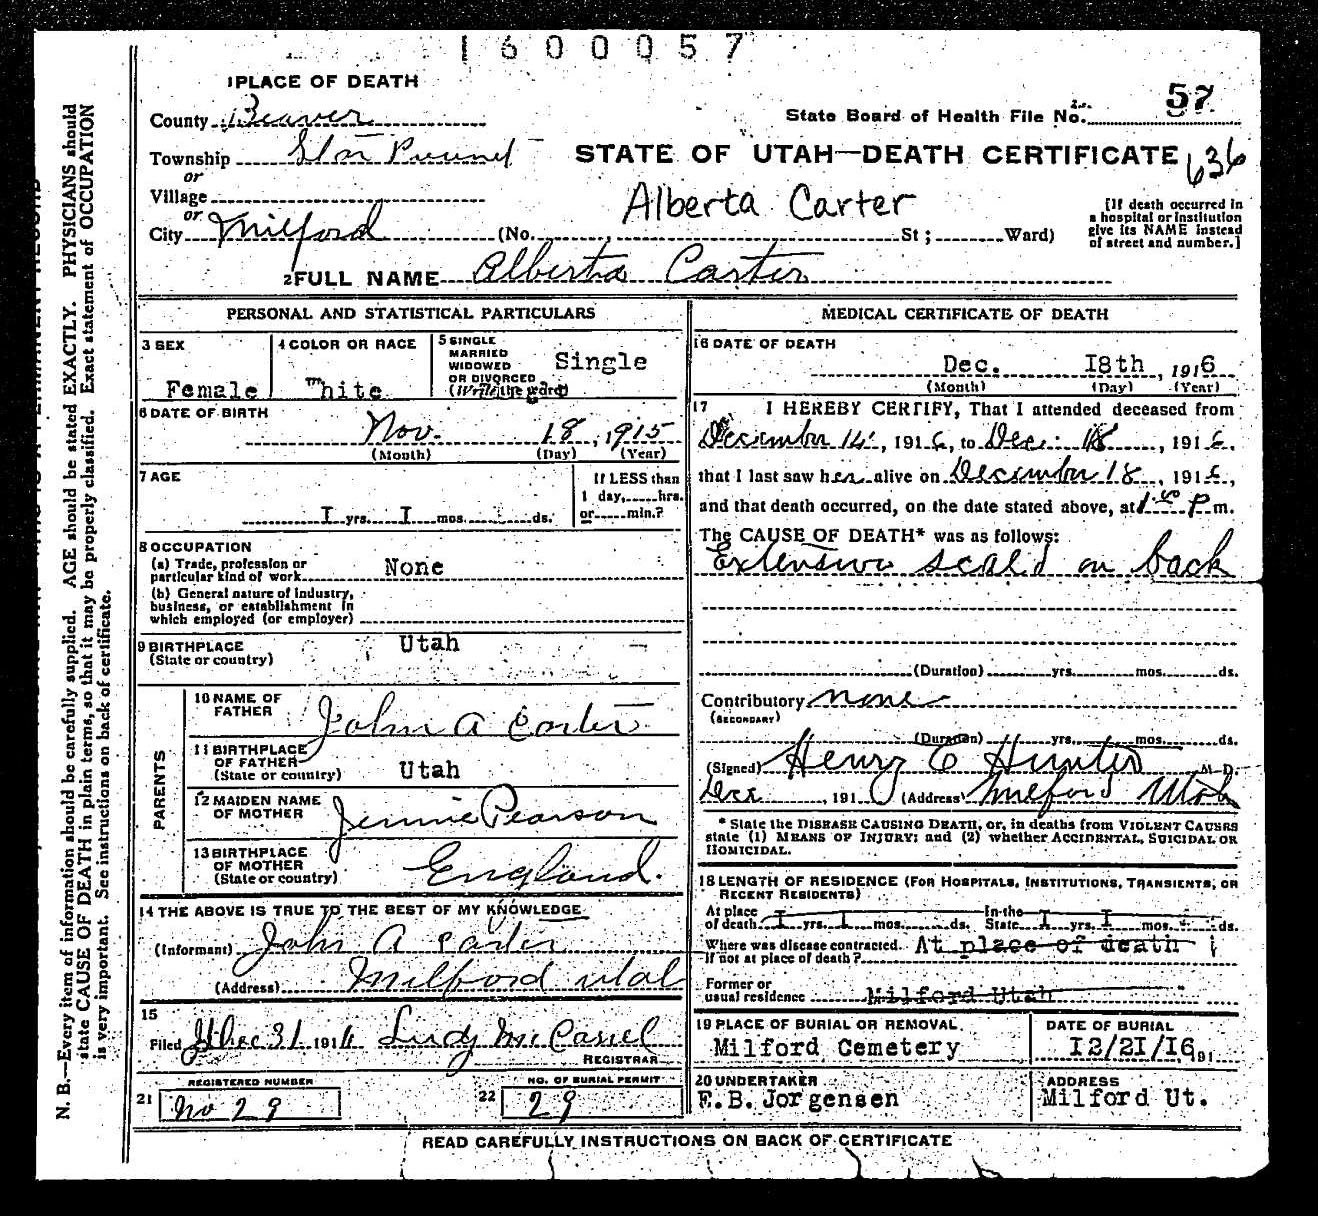 1600057
1 PLACE OF DEATH
County Beaver
State Board of Health File No. 57
Township
STATE OF UTAH—DEATH CERTIFICATE 636
or
Village
Alberta Carter
or
City Milford (No. St; Ward)
[If death occurred in
a hospital or institution
give its NAME instead
of street and number.]
2 FULL NAME Alberta Carter
PERSONAL AND STATISTICAL PARTICULARS
3 SEX
Female
4 COLOR OR RACE
White
5 SINGLE
MARRIED
WIDOWED
OR DIVORCED
(Write the word)
Single
6 DATE OF BIRTH
Nov. 18, 1915
(Month) (Day) (Year)
7 AGE
I yrs. I mos. ds.
If LESS than
1 day, hrs.
or min.?
8 OCCUPATION
(a) Trade, profession or
particular kind of work None
(b) General nature of industry,
business, or establishment in
which employed (or employer)
9 BIRTHPLACE
(State or country)
Utah
PARENTS
10 NAME OF
FATHER
John A Carter
11 BIRTHPLACE
OF FATHER
(State or country) Utah
12 MAIDEN NAME
OF MOTHER
Jennie Pearson
13 BIRTHPLACE
OF MOTHER
(State or country)
England.
14 THE ABOVE IS TRUE TO THE BEST OF MY KNOWLEDGE
(Informant) John A Carter
(Address) Milford Utah
15
Filed Dec 31 1916
REGISTRAR
REGISTERED NUMBER
21 No 29
NO. OF BURIAL PERMIT
22 29
MEDICAL CERTIFICATE OF DEATH
16 DATE OF DEATH
Dec. I8th, 1916
(Month) (Day) (Year)
17 I HEREBY CERTIFY, That I attended deceased from
December 14, 1916, to Dec. 18, 1916.
that I last saw her alive on December 18, 1916,
and that death occurred, on the date stated above, at 1:00 P m.
The CAUSE OF DEATH* was as follows:
Extensive scald on back
(Duration) yrs. mos. ds.
Contributory none
(SECONDARY)
(Duration) yrs. mos. ds.
(Signed) Henry C Hunter M.D.
Dec , 191 (Address) Milford Utah
* State the DISEASE CAUSING DEATH, or, in deaths from VIOLENT CAUSES
state (1) MEANS OF INJURY; and (2) whether ACCIDENTAL, SUICIDAL OR
HOMICIDAL.
18 LENGTH OF RESIDENCE (FOR HOSPITALS, INSTITUTIONS, TRANSIENTS, OR
RECENT RESIDENTS)
At place In the
of death I yrs. I mos. ds. State I yrs. I mos. ds.
Where was disease contracted. At place of death
if not at place of death?
Former or
usual residence Milford Utah
19 PLACE OF BURIAL OR REMOVAL
Milford Cemetery
DATE OF BURIAL
I2/2I/I6 191
20 UNDERTAKER
E.B. Jorgensen
ADDRESS
Milford Ut.
READ CAREFULLY INSTRUCTIONS ON BACK OF CERTIFICATE
N. B.—Every item of information should be carefully supplied. AGE should be stated EXACTLY. PHYSICIANS should
state CAUSE OF DEATH in plain terms, so that it may be properly classified. Exact statement of OCCUPATION
is very important. See instructions on back of certificate.